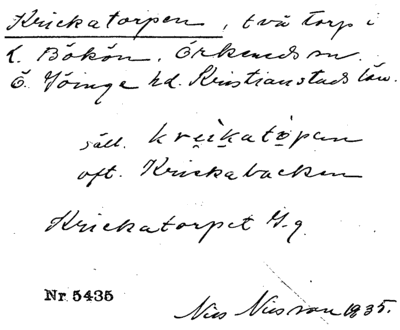 Krickatorpen, två torp i
L. Bökön, Örkeneds sn.
Ö. Göinge hd. Kristianstads län.
säll. kreikatopan
oft. Krickabacken
Krickatorpet
Nr 5435
Nils Nilsson 1935.